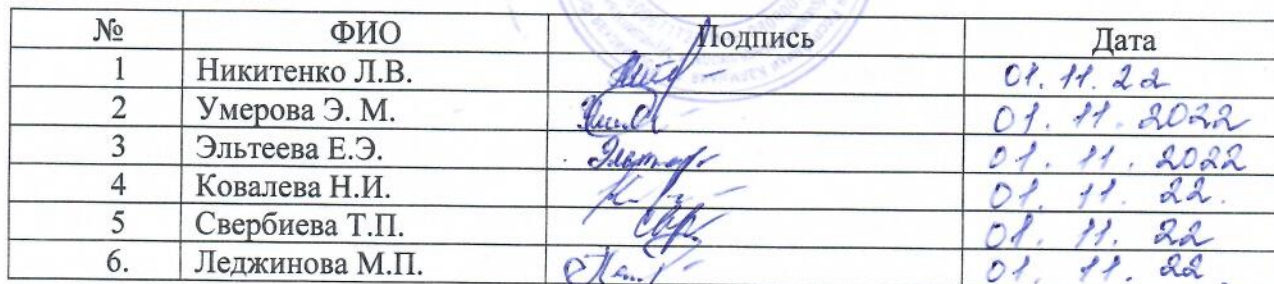 № ФИО Подпись Дата
1 Никитенко Л.В. 01.11.22
2 Умерова Э. М. 01.11.2022
3 Эльтеева Е.Э. 01.11.2022
4 Ковалева Н.И. 01.11.22.
5 Свербиева Т.П. 01.11.22
6. Леджинова М.П. 01.11.22.